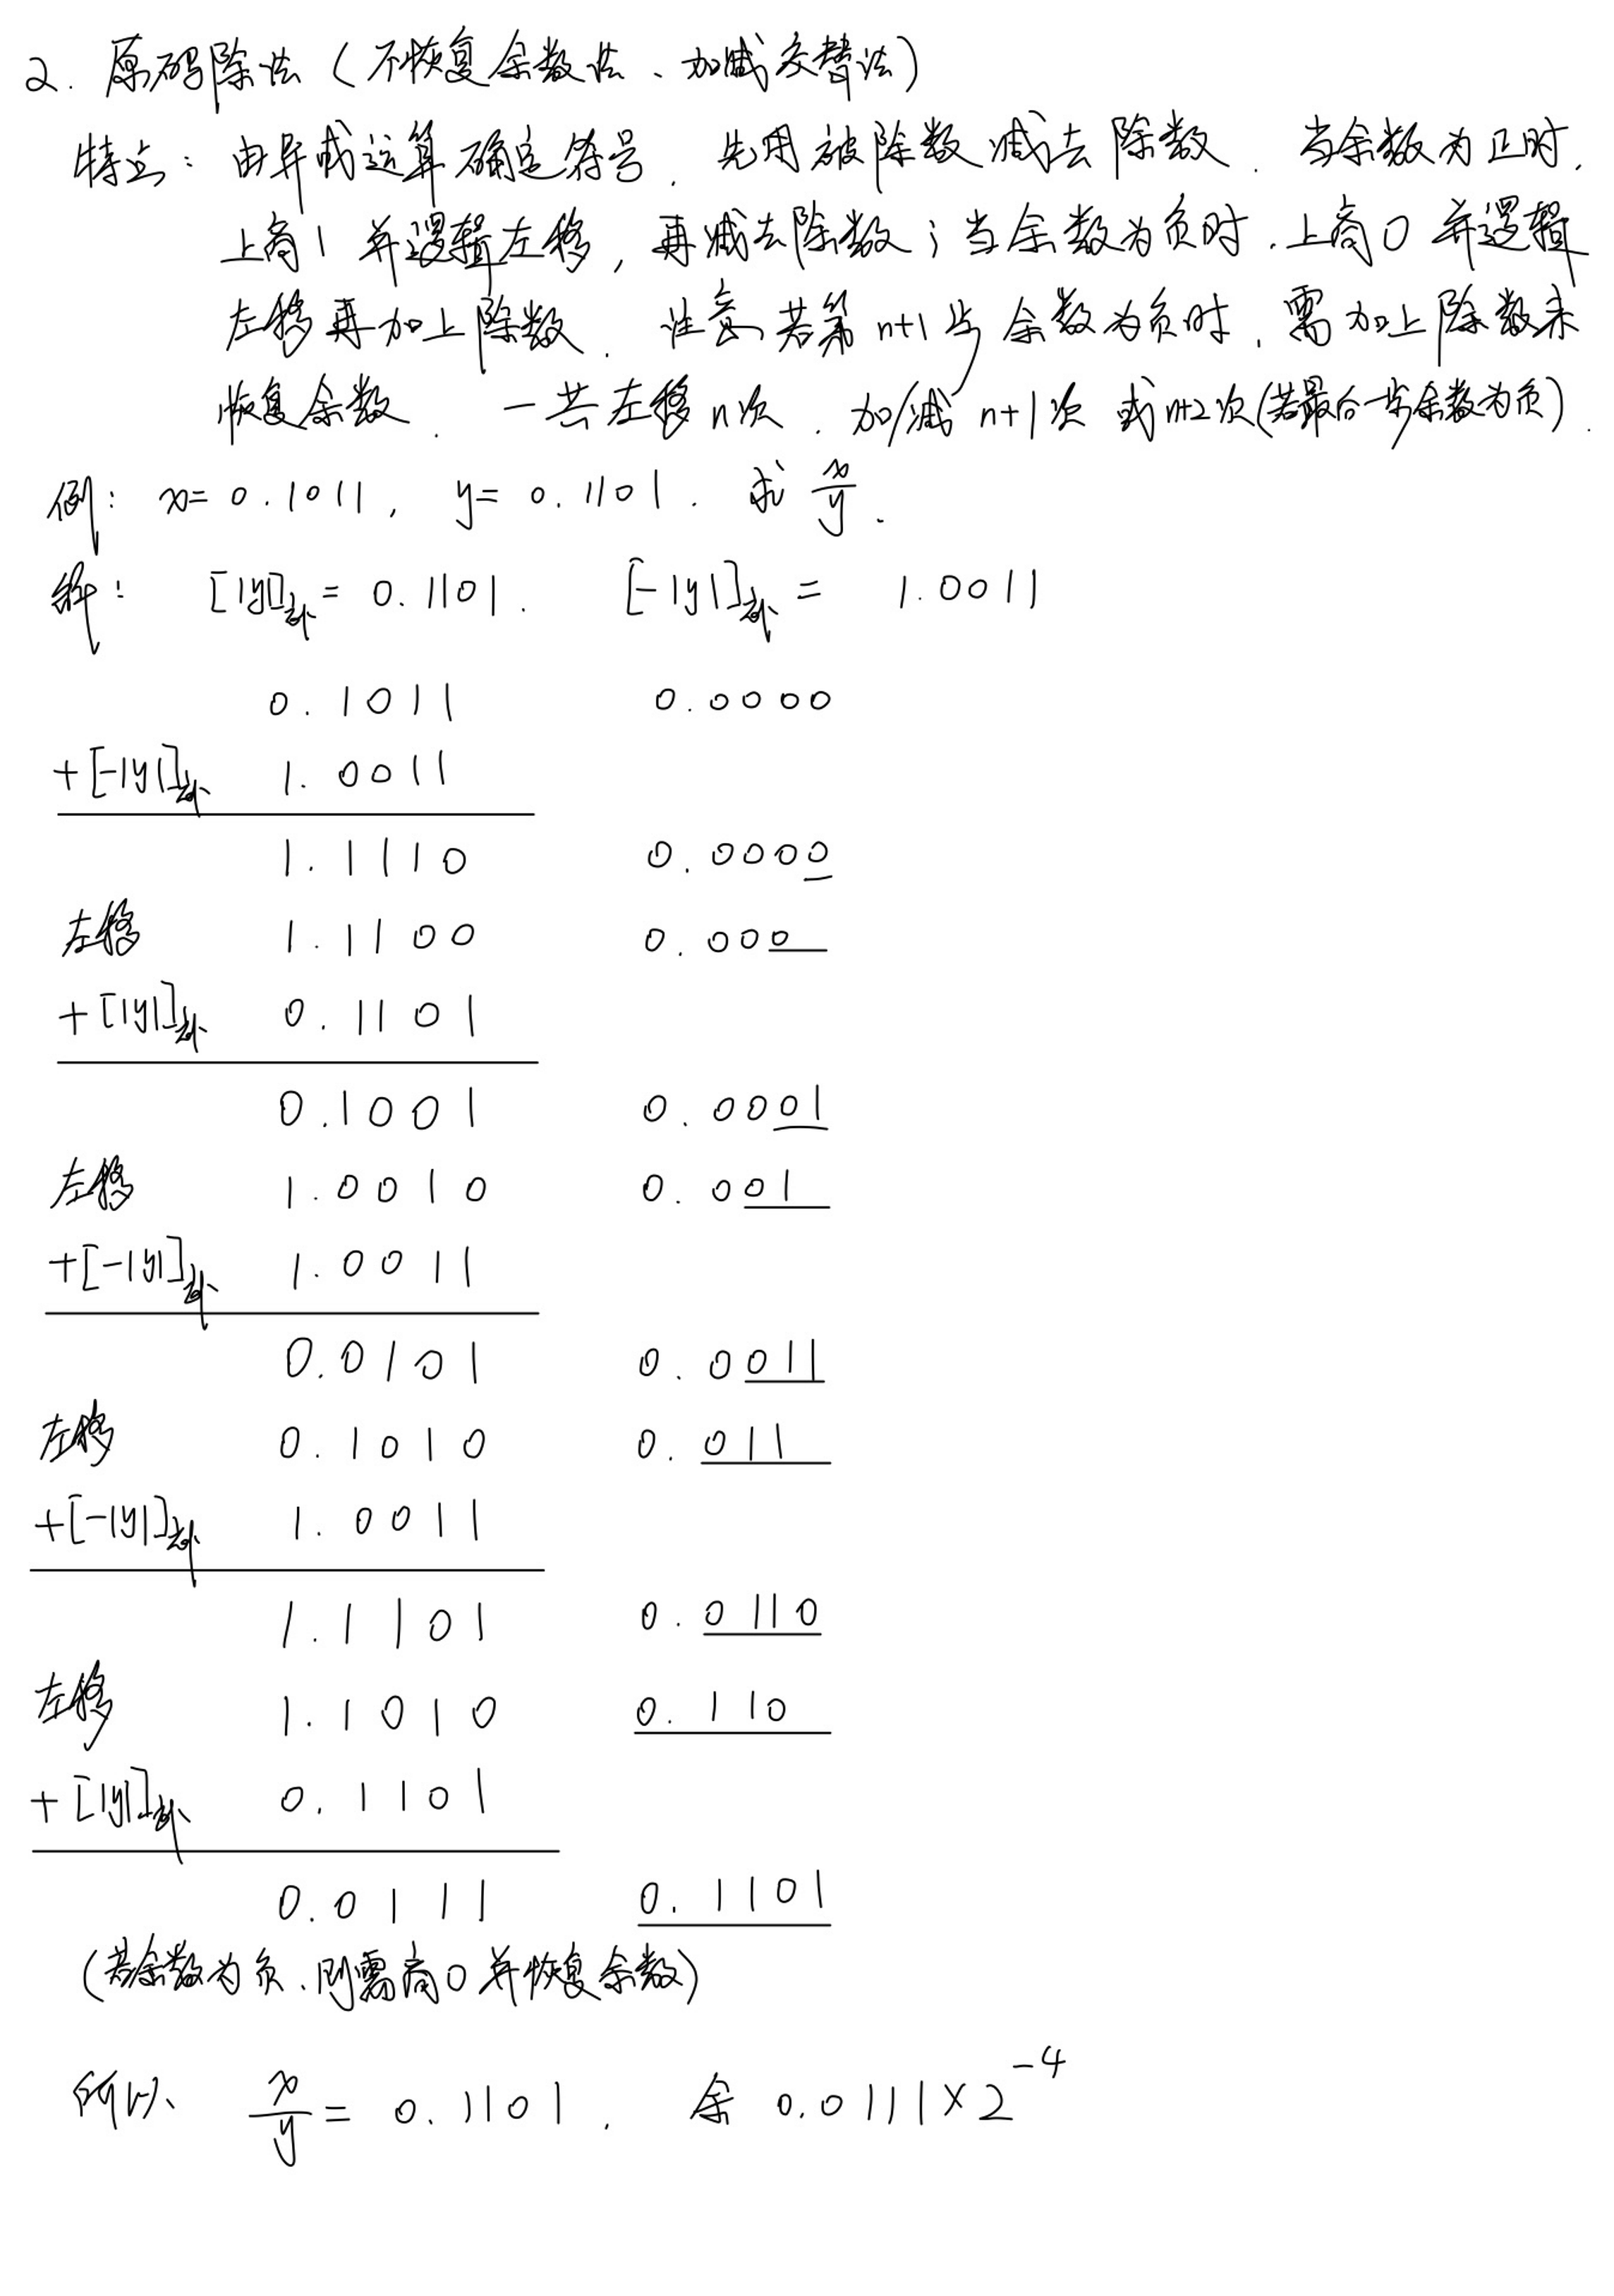 2. 原码除法（不恢复余数法、加减交替法）
特点：由异或运算确定符号，先用被除数减去除数．当余数为正时，
上商1并逻辑左移，再减去除数；当余数为负时，上商0并逻辑
左移再加上除数．注意，若第n+1步余数为负时，需加上除数来
恢复余数．一共左移n次．加/减n+1次或n+2次(若最后一步余数为负)．
例：x=0.1011，y=0.1101．求x/y．
解：[|y|]补=0.1101．[-|y|]补=1.0011
0.1011 0.0000
+[-|y|]补 1.0011
1.1110 0.0000
左移 1.1100 0.000
+[|y|]补 0.1101
0.1001 0.0001
左移 1.0010 0.001
+[-|y|]补 1.0011
0.0101 0.0011
左移 0.1010 0.011
+[-|y|]补 1.0011
1.1101 0.0110
左移 1.1010 0.110
+[|y|]补 0.1101
0.0111 0.1101
(若余数为负、则需商0并恢复余数)
所以、x/y=0.1101．余0.0111×2^-4